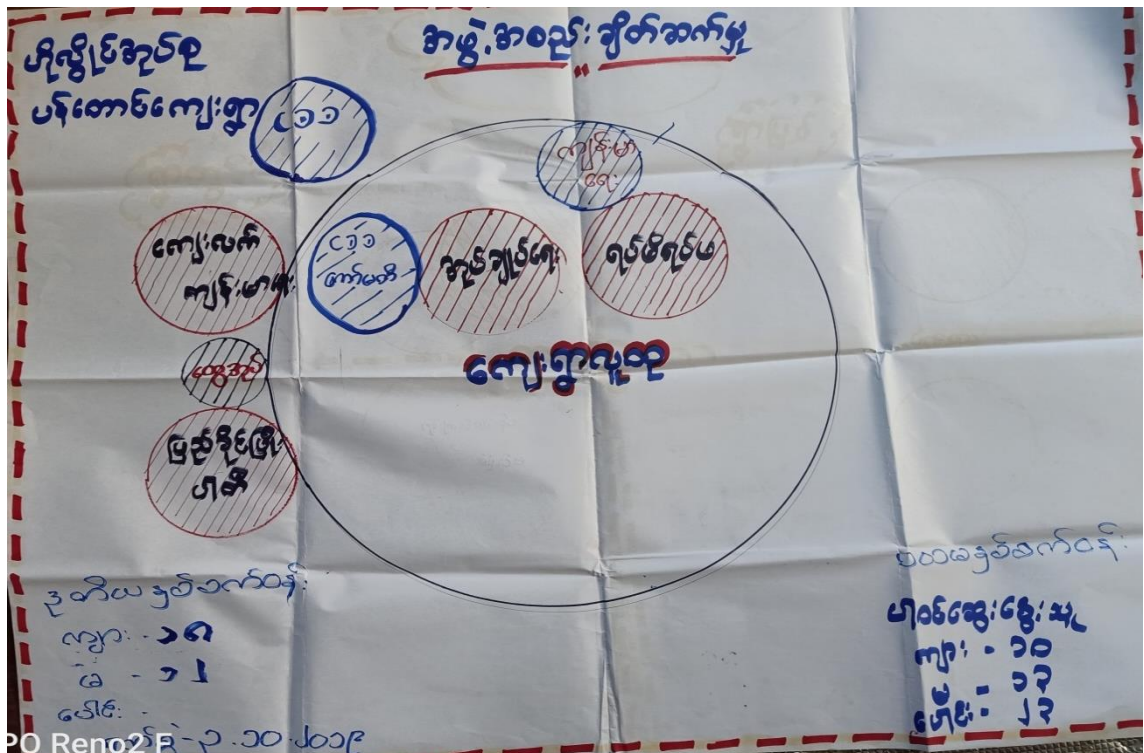 ဟိုလွိုင်အုပ်စု
ပန်တောင်ကျေးရွာ
အဖွဲ့အစည်းချိတ်ဆက်မှု
ကျန်းမာ
ရေး
ကျေးလက်
ကျန်းမာရေး
ကော်မတီ
အုပ်ချုပ်ရေး
ရပ်မိရပ်ဖ
ကျေးရွာလူထု
ထွေအုပ်
ပြည်ခိုင်ဖြိုး
ပါတီ
ဒုတိယနှစ်ဝက်ဝန်း
ကျား - ၁၈
မ - ၁၂
ပေါင်း -
- ၃.၁၀.၂၀၁၉
ပထမနှစ်ဝက်ဝန်း
ပါဝင်ဆွေးနွေးသူ
ကျား - ၁၀
မ - ၁၃
ပေါင်း - ၂၃
PO Reno2 F